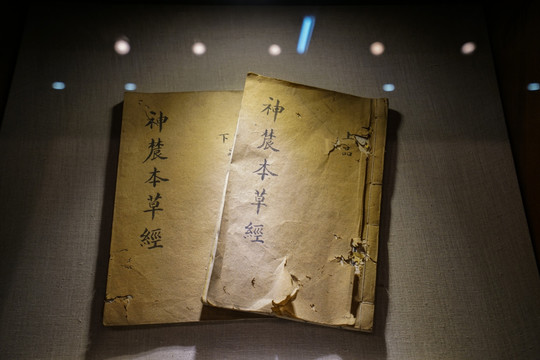 神農本草經
下
神農本草經
上品